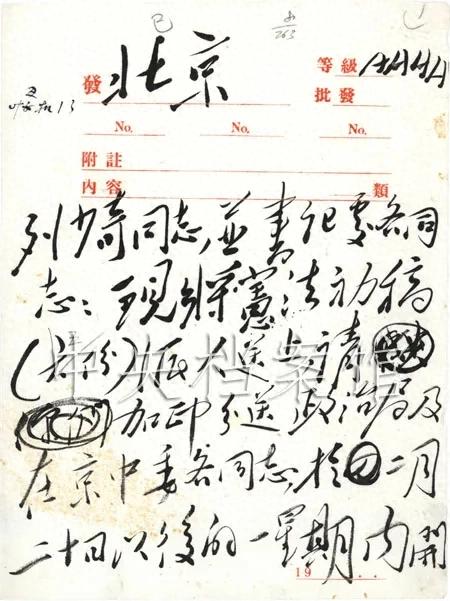 發 北京 等級 AAAA
批發
No. No. No.
附註
內容 類
刘少奇同志,並書記處各同
志:現將憲法初稿
(五份)派人送上請
加印分送政治局及
在京中委各同志,於二月
二十日以後的一星期内開
19
中央档案馆